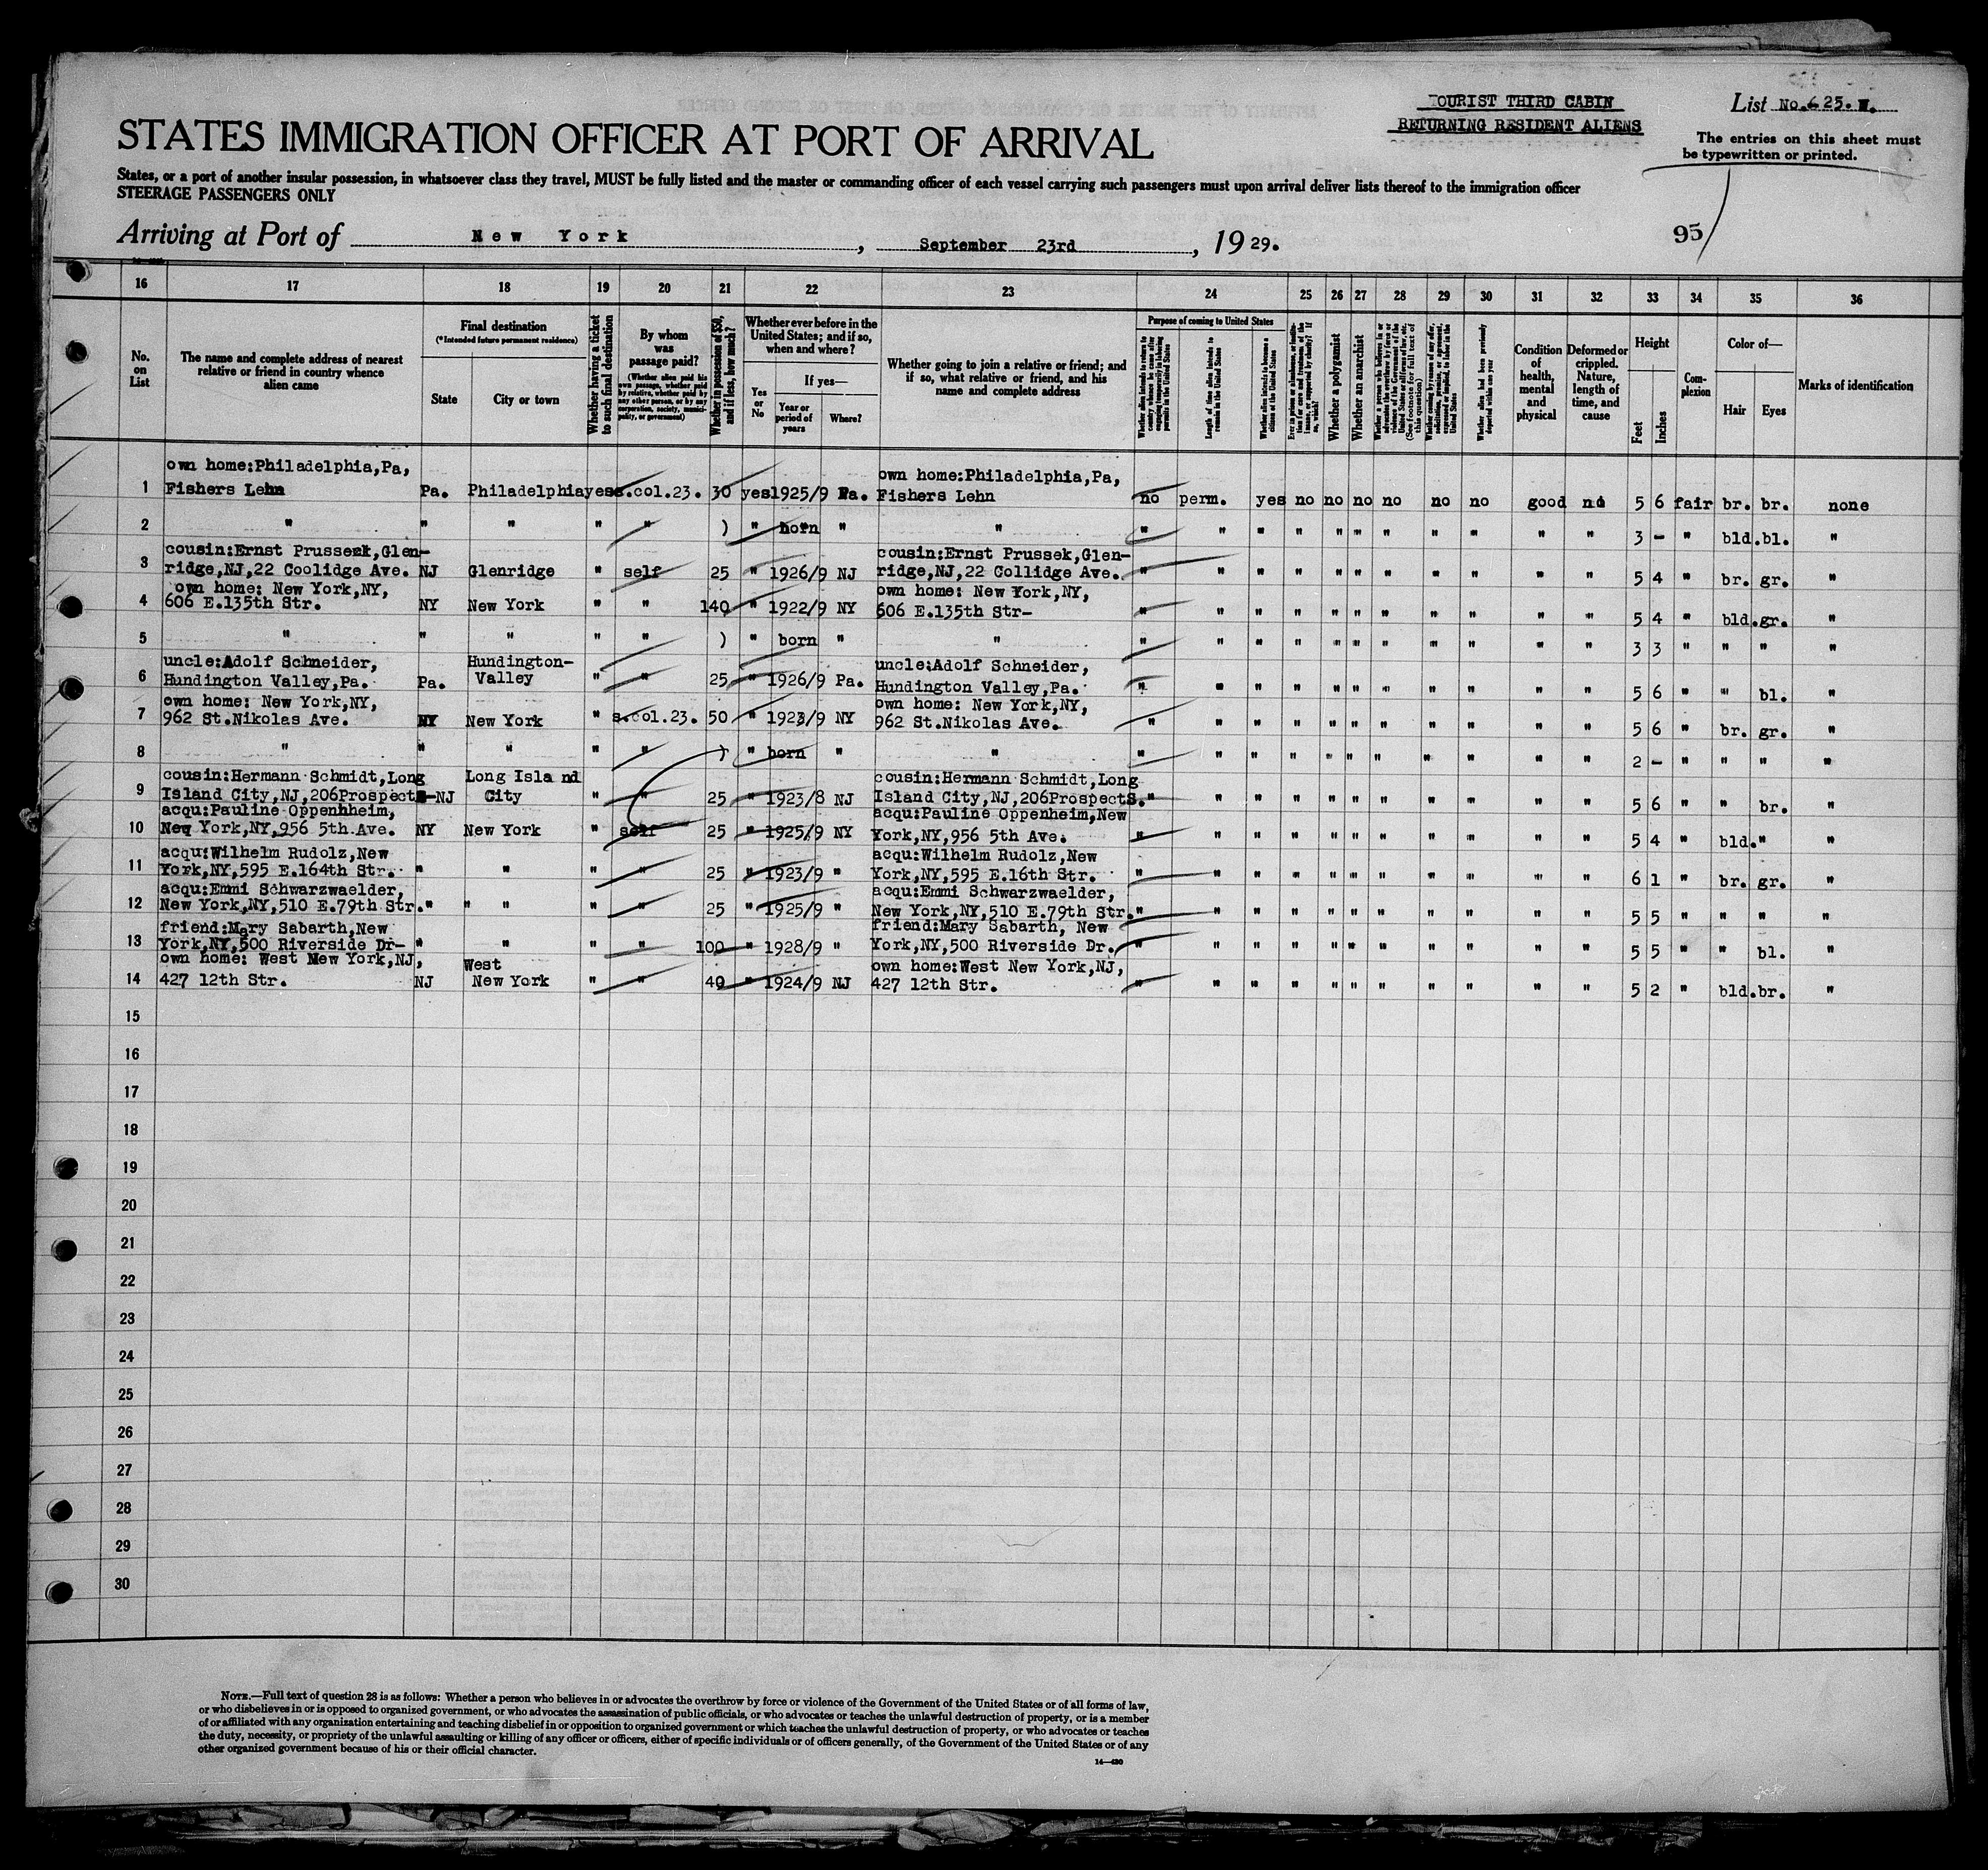 TOURIST THIRD CABIN
RETURNING RESIDENT ALIENS
List No. 25.
The entries on this sheet must
be typewritten or printed.
STATES IMMIGRATION OFFICER AT PORT OF ARRIVAL
States, or a port of another insular possession, in whatsoever class they travel, MUST be fully listed and the master or commanding officer of each vessel carrying such passengers must upon arrival deliver lists thereof to the immigration officer
STEERAGE PASSENGERS ONLY
95
Arriving at Port of New York, September 23rd, 1929.
16 17 18 19 20 21 22 23 24 25 26 27 28 29 30 31 32 33 34 35 36
No. on List
The name and complete address of nearest relative or friend in country whence alien came
Final destination
(*Intended future permanent residence)
State
City or town
Whether having a ticket to such final destination
By whom was passage paid?
(Whether alien paid his own passage, whether paid by relative, whether paid by any other person, or by any corporation, society, municipality, or government)
Whether in possession of $50, and if less, how much?
Whether ever before in the United States; and if so, when and where?
Yes or No
If yes—
Year or period of years
Where?
Whether going to join a relative or friend; and if so, what relative or friend, and his name and complete address
Purpose of coming to United States
Length of time alien intends to remain in the United States
Whether alien intends to become a citizen of the United States
Whether a polygamist
Whether an anarchist
(See footnote for full text of this question)
Whether alien had been previously deported within one year
Condition of health, mental and physical
Deformed or crippled. Nature, length of time, and cause
Height
Feet
Inches
Complexion
Color of—
Hair
Eyes
Marks of identification
own home:Philadelphia,Pa, own home:Philadelphia,Pa,
1 Fishers Lehn Pa. Philadelphia yes s.col.23. 30 yes 1925/9 Pa. Fishers Lehn no perm. yes no no no no no no good no 5 6 fair br. br. none
2 " " " " " ) " born " " " " " " " " " " " " " 3 - " bld. bl. "
cousin:Ernst Prussek,Glen- cousin:Ernst Prussek,Glen-
3 ridge,NJ,22 Coolidge Ave. NJ Glenridge " self 25 " 1926/9 NJ ridge,NJ,22 Collidge Ave. " " " " " " " " " " " 5 4 " br. gr. "
own home: New York,NY, own home: New York,NY,
4 606 E.135th Str. NY New York " " 140 " 1922/9 NY 606 E.135th Str- " " " " " " " " " " " 5 4 " bld. gr. "
5 " " " " " ) " born " " " " " " " " " " " " " 3 3 " " " "
uncle:Adolf Schneider, Hundington- uncle:Adolf Schneider,
6 Hundington Valley,Pa. Pa. Valley " " 25 " 1926/9 Pa. Hundington Valley,Pa. " " " " " " " " " " " 5 6 " " bl. "
own home: New York,NY, own home: New York,NY,
7 962 St.Nikolas Ave. NY New York " s.col.23. 50 " 1923/9 NY 962 St.Nikolas Ave. " " " " " " " " " " " 5 6 " br. gr. "
8 " " " " " ) " born " " " " " " " " " " " " " 2 - " " " "
cousin:Hermann Schmidt,Long Long Isla nd cousin:Hermann Schmidt,Long
9 Island City,NJ,206Prospect NJ City " " 25 " 1923/8 NJ Island City,NJ,206ProspectS. " " " " " " " " " " " 5 6 " " br. "
acqu:Pauline Oppenhheim, acqu:Pauline Oppenheim,New
10 New York,NY,956 5th Ave. NY New York " self 25 " 1925/9 NY York,NY,956 5th Ave. " " " " " " " " " " " 5 4 " bld. " "
acqu:Wilhelm Rudolz,New acqu:Wilhelm Rudolz,New
11 York,NY,595 E.164th Str. " " " " 25 " 1923/9 " York,NY,595 E.16th Str. " " " " " " " " " " " 6 1 " br. gr. "
acqu:Emmi Schwarzwaelder, acqu:Emmi Schwarzwaelder,
12 New York,NY,510 E.79th Str. " " " " " 25 " 1925/9 " New York,NY,510 E.79th Str. " " " " " " " " " " " 5 5 " " " "
friend:Mary Sabarth,New friend:Mary Sabarth, New
13 York,NY,500 Riverside Dr- " " " " 100 " 1928/9 " York,NY,500 Riverside Dr. " " " " " " " " " " " 5 5 " " bl. "
own home: West New York,NJ, West own home:West New York,NJ,
14 427 12th Str. NJ New York " " 40 " 1924/9 NJ 427 12th Str. " " " " " " " " " " " 5 2 " bld. br. "
15
16
17
18
19
20
21
22
23
24
25
26
27
28
29
30
NOTE.—Full text of question 28 is as follows: Whether a person who believes in or advocates the overthrow by force or violence of the Government of the United States or of all forms of law,
or who disbelieves in or is opposed to organized government, or who advocates the assassination of public officials, or who advocates or teaches the unlawful destruction of property, or is a member
of or affiliated with any organization entertaining and teaching disbelief in or opposition to organized government or which teaches the unlawful destruction of property, or who advocates or teaches
the duty, necessity, or propriety of the unlawful assaulting or killing of any officer or officers, either of specific individuals or of officers generally, of the Government of the United States or of any
other organized government because of his or their official character.
14—430